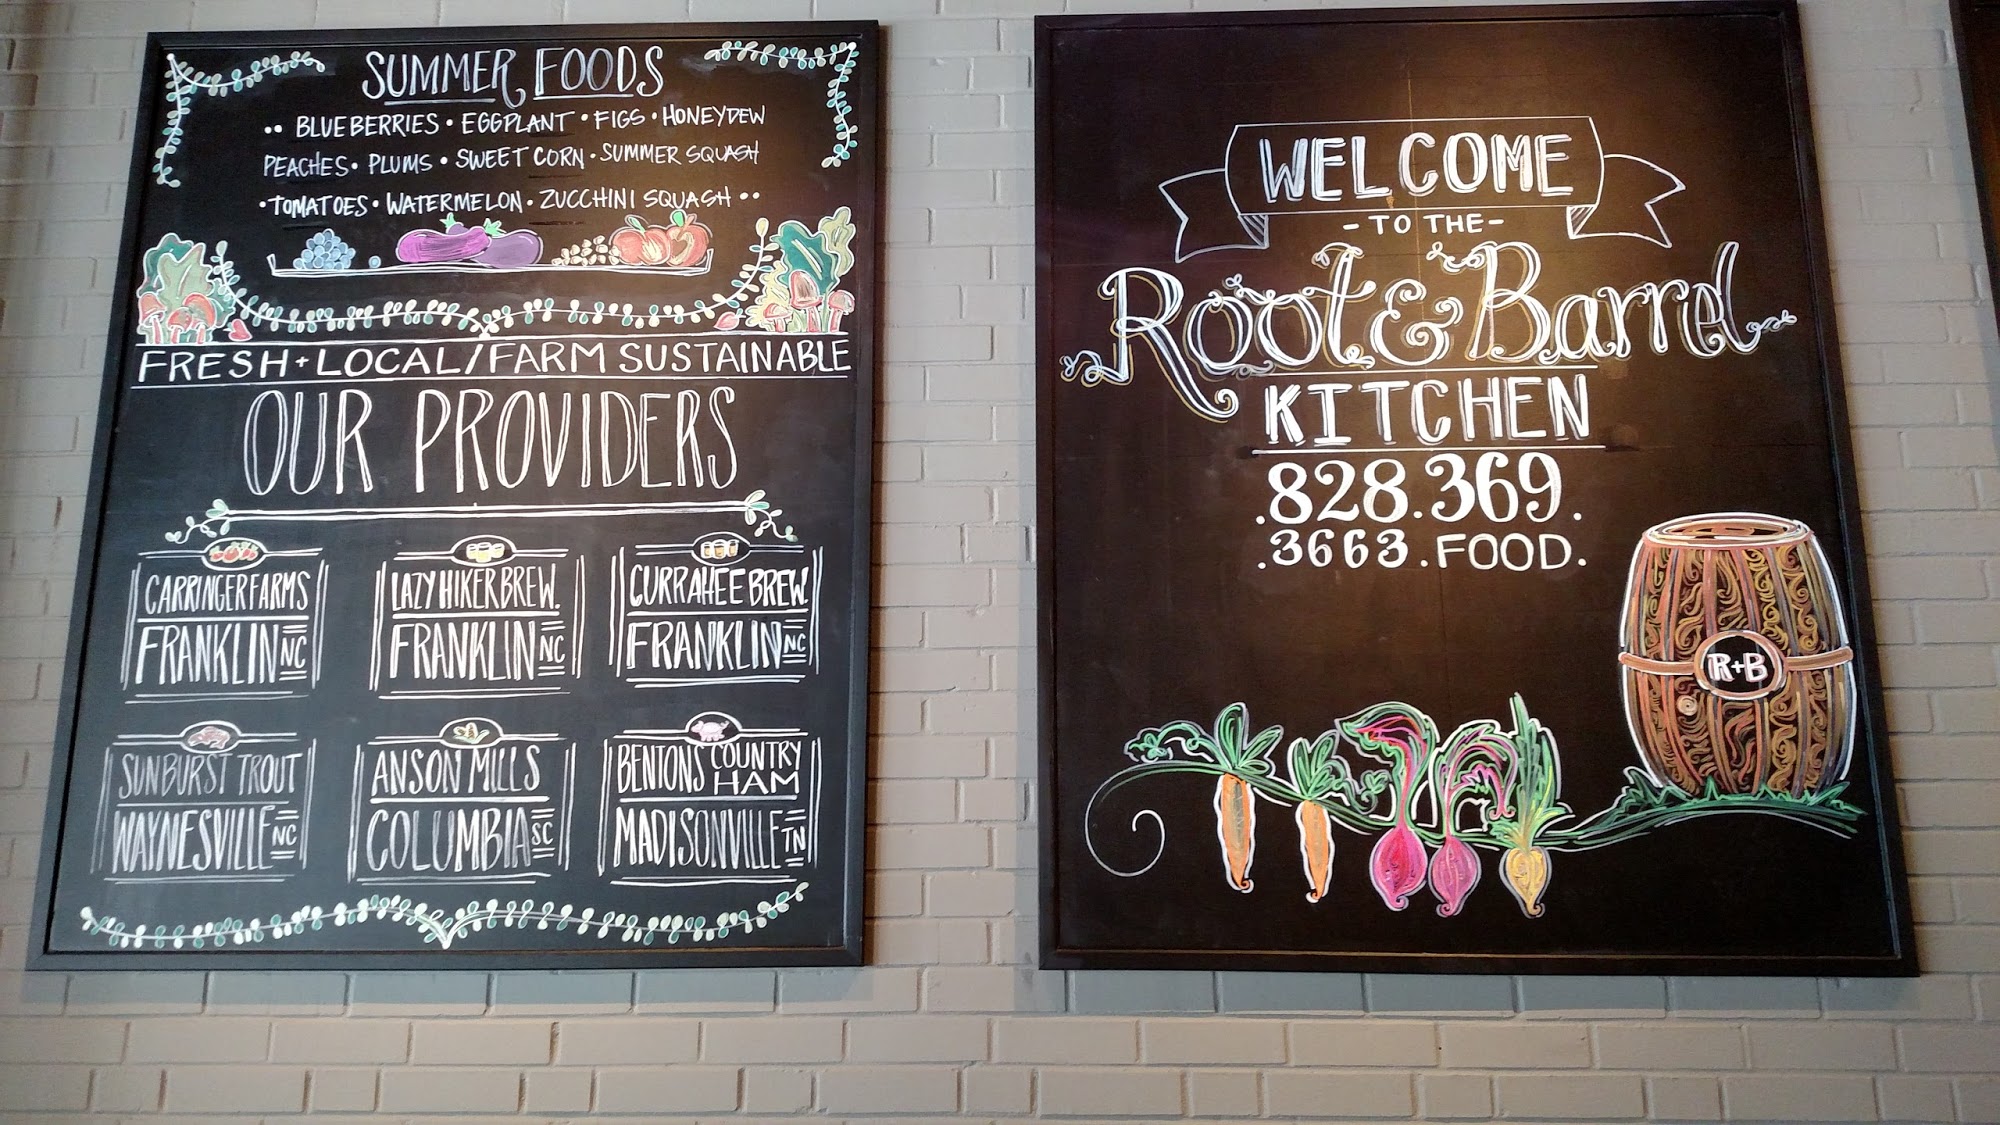 SUMMER FOODS
•• BLUEBERRIES • EGGPLANT • FIGS • HONEYDEW
PEACHES • PLUMS • SWEET CORN • SUMMER SQUASH
• TOMATOES • WATERMELON • ZUCCHINI SQUASH ••
FRESH + LOCAL / FARM SUSTAINABLE
OUR PROVIDERS
CARRINGER FARMS
FRANKLIN NC
LAZY HIKER BREW.
FRANKLIN NC
CURRAHEE BREW.
FRANKLIN NC
SUNBURST TROUT
WAYNESVILLE NC
ANSON MILLS
COLUMBIA SC
BENTONS COUNTRY HAM
MADISONVILLE TN
WELCOME
- TO THE -
Root & Barrel
KITCHEN
.828.369.
.3663.FOOD.
R+B